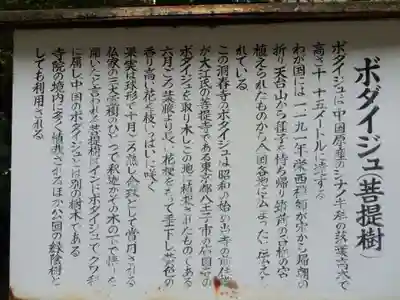 ボダイジュ(菩提樹)
ボダイジュは中国原産のシナノキ科の落葉高木で
高さ十~十五メートルに達する
わが国には一一九一年栄西禅師が宋から帰朝の
折り天台山から種子を持ち帰り筑前の香椎の宮
に植えられたものから全国各地に広まったと伝え
られている
この洞春寺のボダイジュは昭和の始め当寺の前住
が大江氏の菩提寺である東京都八王子市の
ボダイジュを取り木しこの地に植栽されたものである
六月ごろ葉腋より長い花梗をのばして垂下し黄色の
香り高い花を枝いっぱいに咲く
果実は球形で十月ごろ熟し念珠として賞用される
仏家の三大霊樹のひとつで釈迦がその木の下で悟りを
開いたと言われる菩提樹はインドボダイジュでクワ科
に属し中国のボダイジュとは別の樹木である
寺院の境内に多く植栽されるほか公園の緑陰樹と
しても利用される